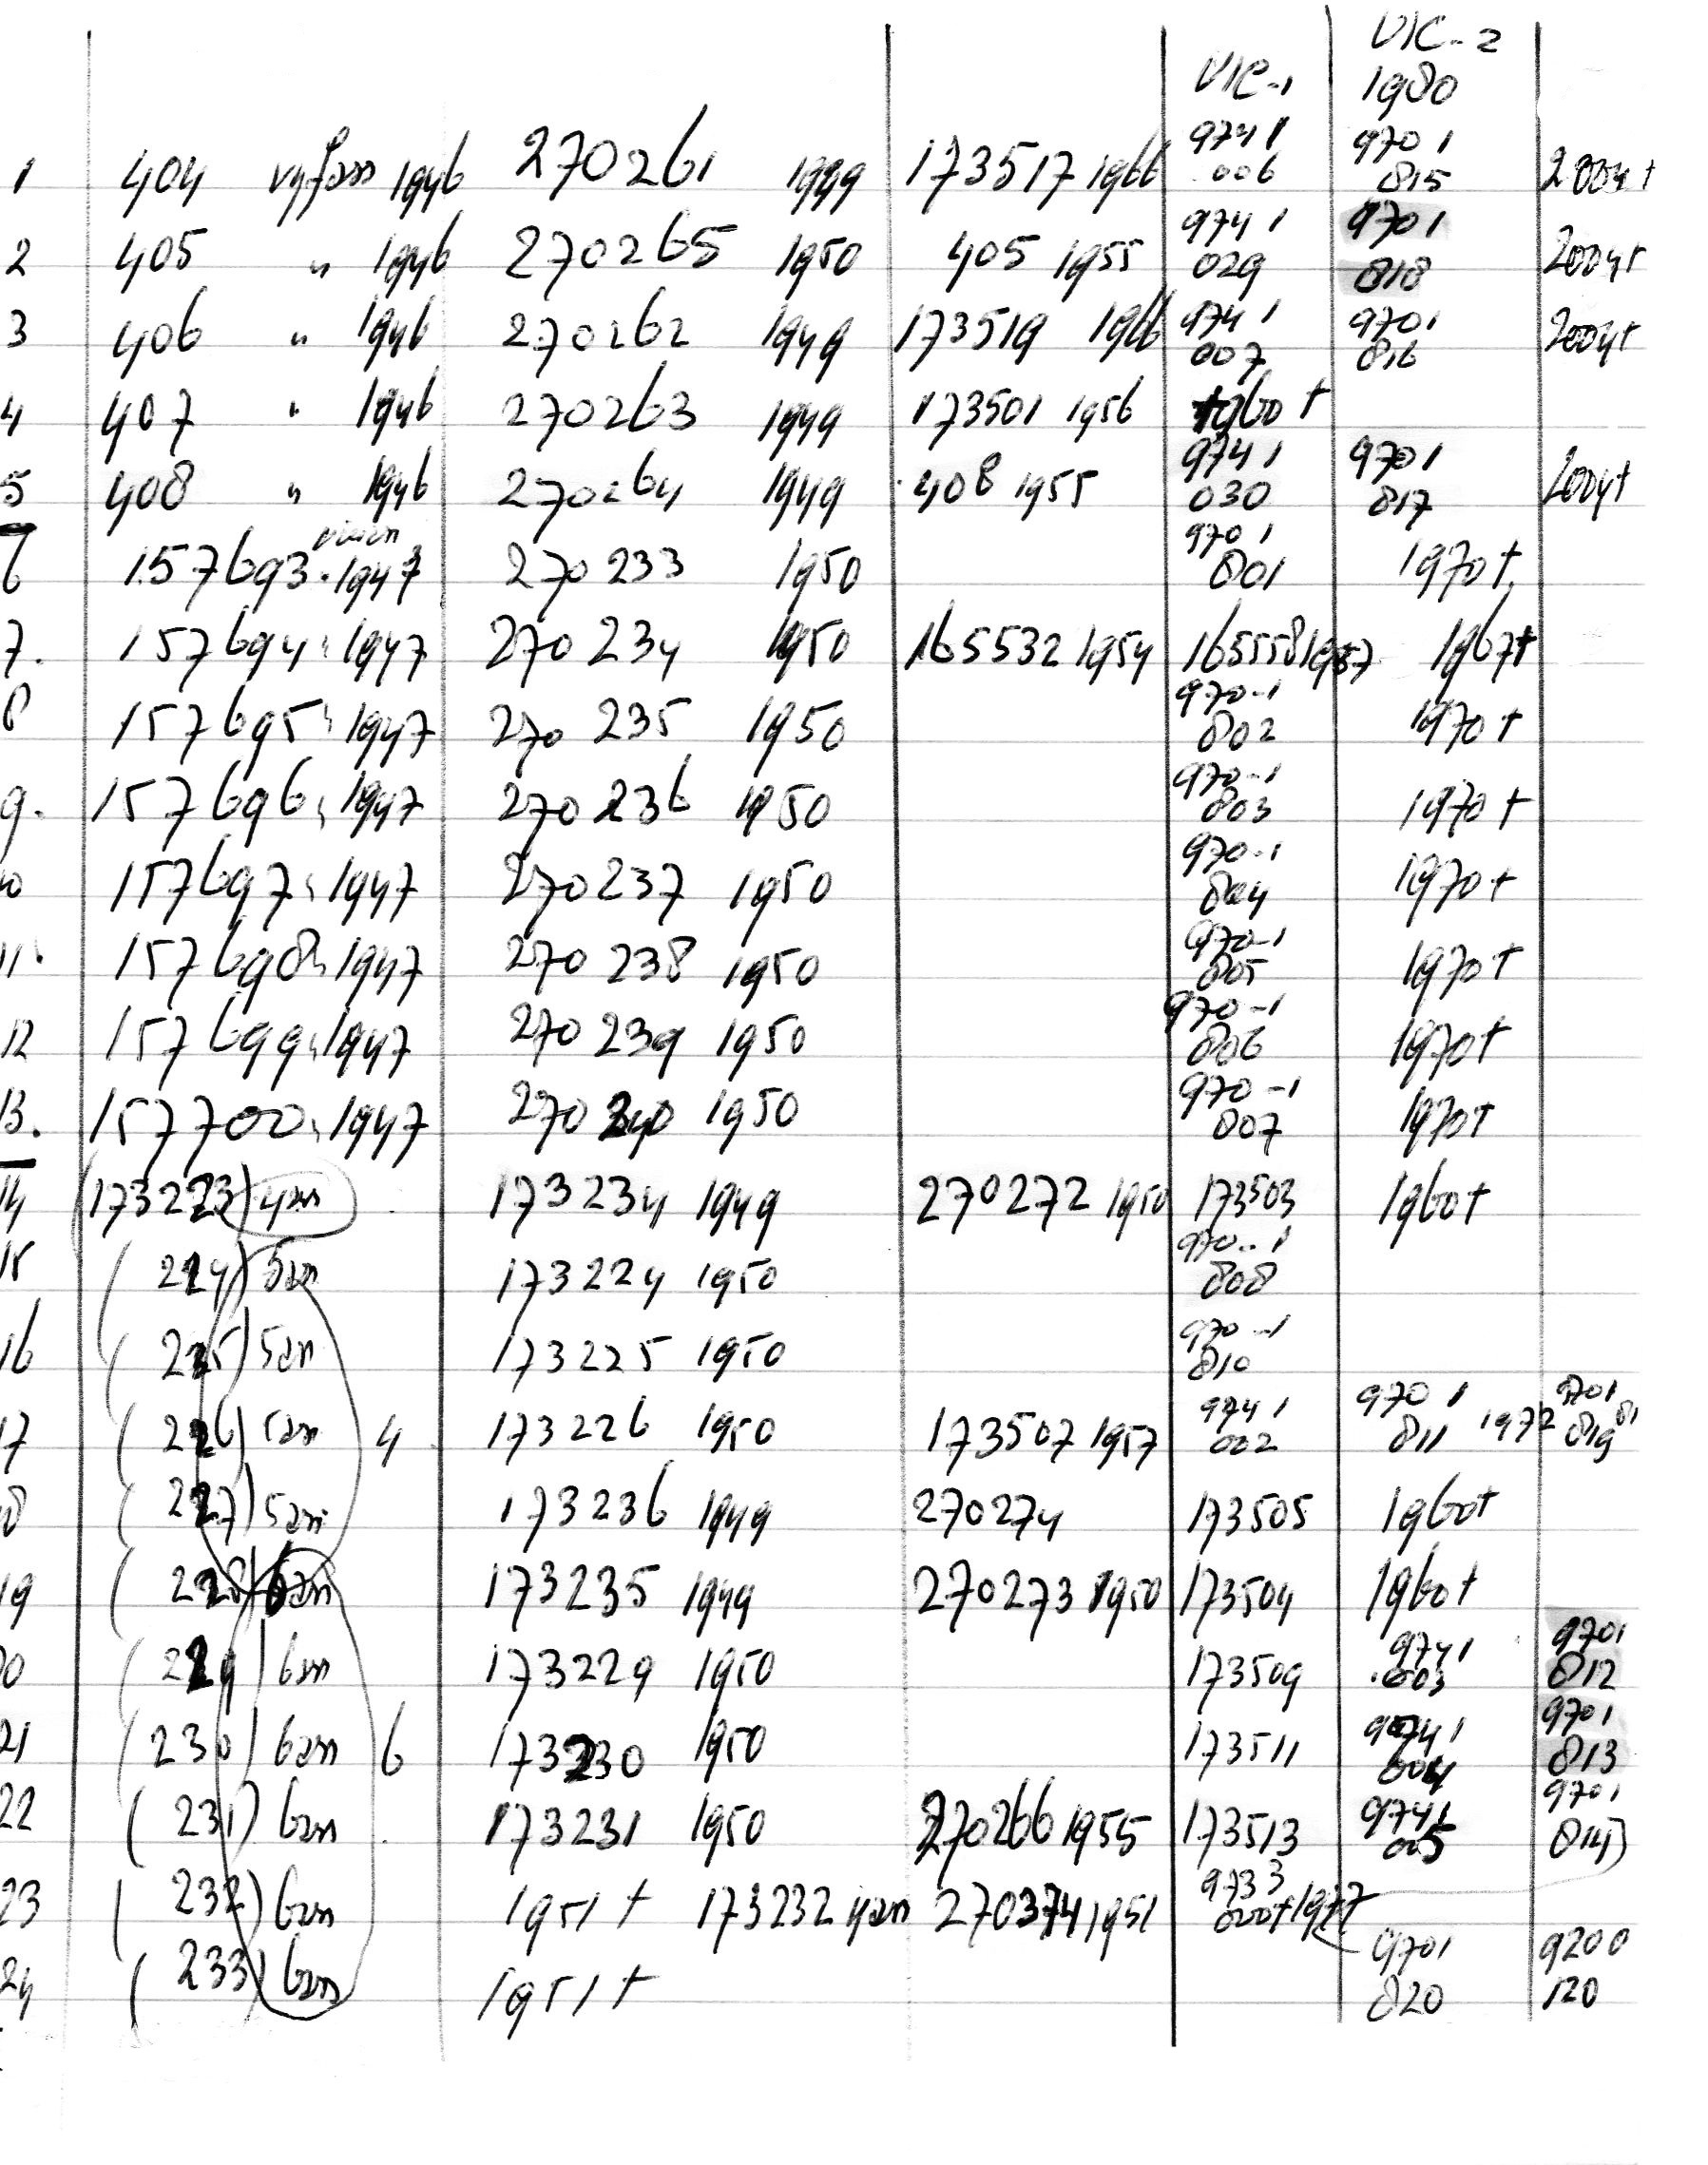 VIC-2
VIC-1 1980
1 404 1946 270261 1949 173517 1966 9741 006 9701 815 2004+
2 405 " 1946 270265 1950 405 1955 9741 029 9701 818 2004+
3 406 " 1946 270262 1949 173519 1966 9741 007 9701 816 2004+
4 407 " 1946 270263 1949 173501 1956 1960+
5 408 " 1946 270264 1949 408 1955 9741 030 9701 817 2004+
6 157693 1947 270233 1950 9701 801 1970+
7. 157694 " 1947 270234 1950 165532 1954 165558 1957 1967+
8 157695 " 1947 270 235 1950 970-1 802 1970+
9. 157696 " 1947 270 236 1950 970-1 803 1970+
10 157697 " 1947 270237 1950 970-1 804 1970+
11. 157698 " 1947 270 238 1950 970-1 805 1970+
12 157699 " 1947 270 239 1950 970-1 806 1970+
13. 157700 " 1947 270 240 1950 970-1 807 1970+
14 (173223) 4an 173234 1949 270272 1950 173503 1960+
15 (224) 5an 173224 1950 970-1 808
16 (225) 5an 173225 1950 970-1 810
17 (226) 5an 4 173226 1950 173507 1957 9741 002 9701 811 1972 9701 819 81
18 (227) 5an 173236 1949 270274 173505 1960+
19 (228) 6an 173235 1949 270273 1950 173504 1960+
20 (229) 6an 173229 1950 173509 9741 003 9701 812
21 (230) 6an 6 173230 1950 173511 9741 004 9701 813
22 (231) 6an 173231 1950 270266 1955 173513 9741 005 9701 814)
23 (232) 6an 1951+ 173232 4an 270374 1951 9733 000+1977
24 (233) 6an 1951+ 9701 820 9200 120